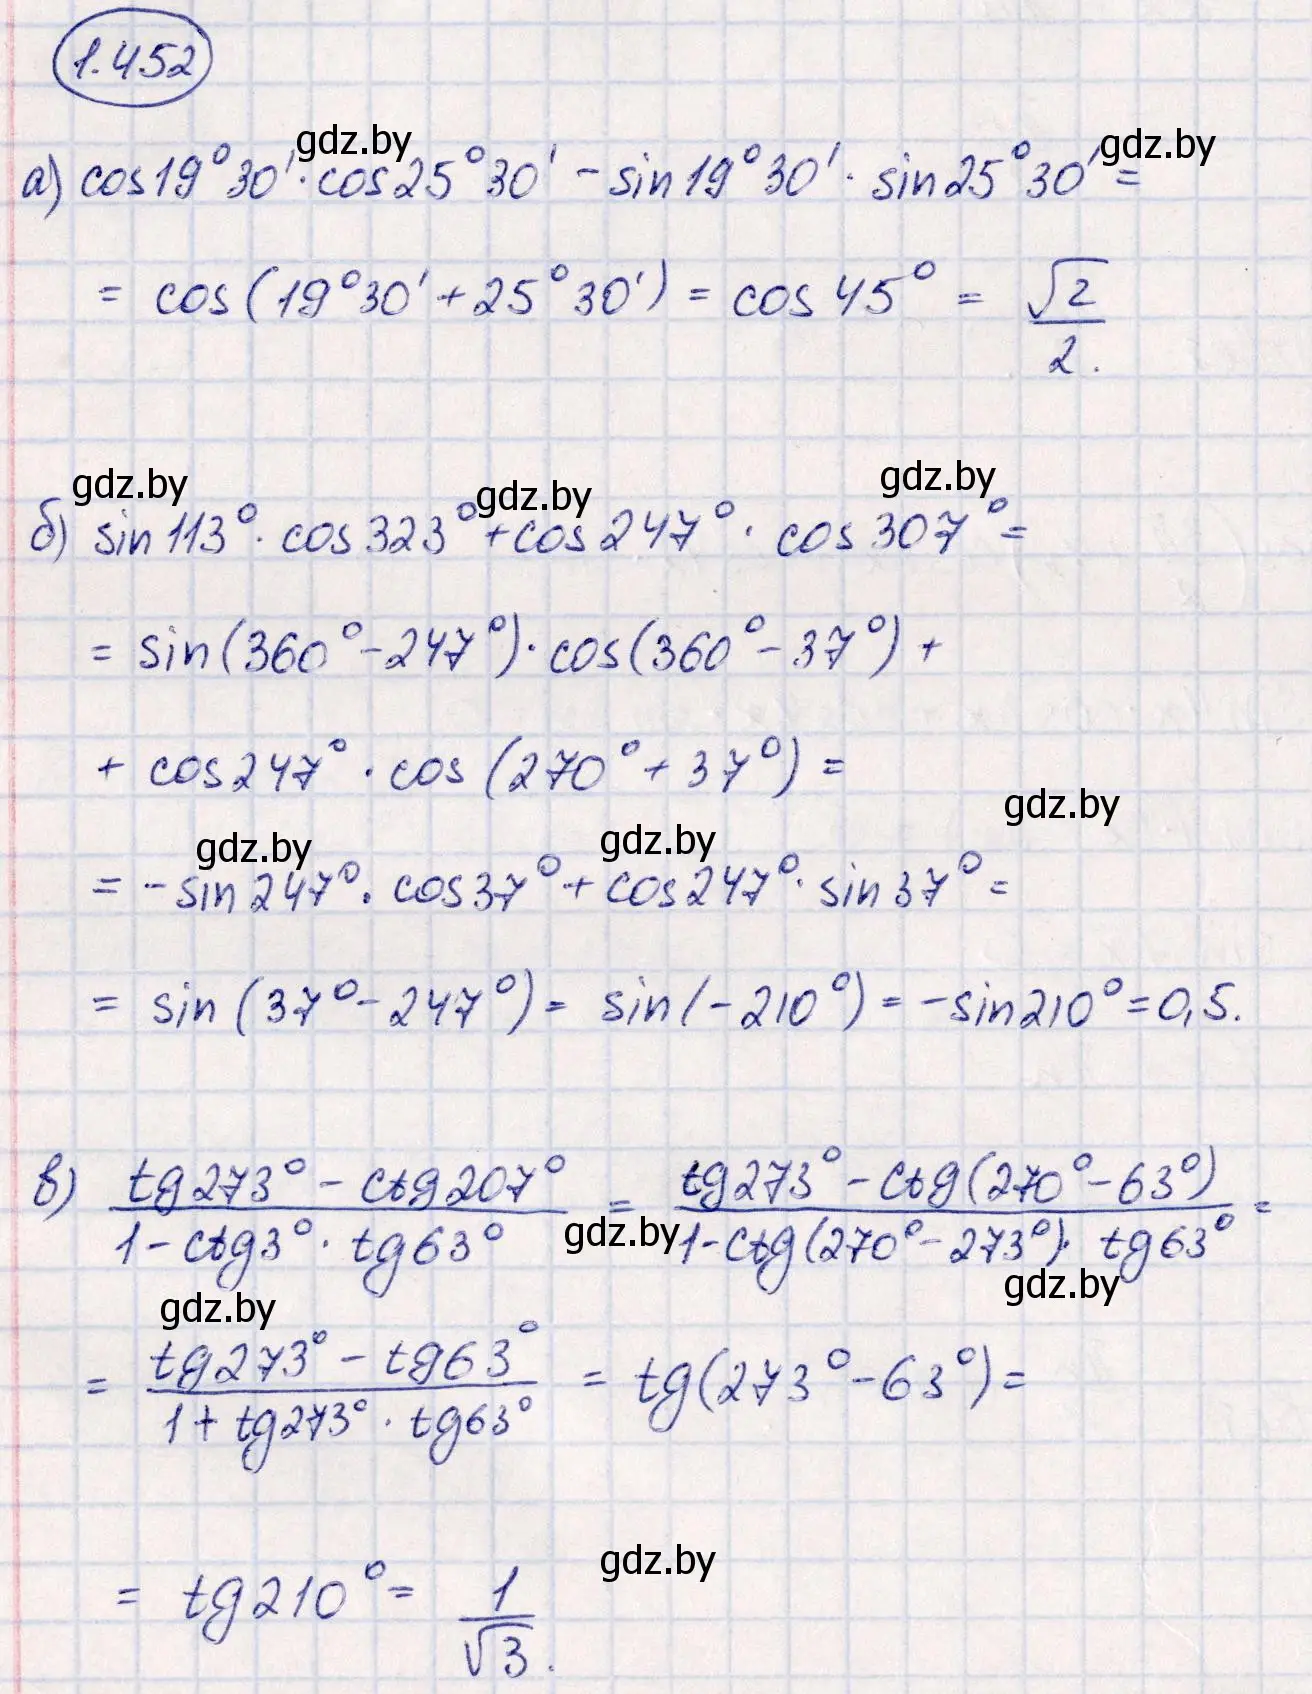 1.452
gdz.by gdz.by
а) cos19°30'·cos25°30' - sin19°30'· sin25°30' =
= cos(19°30' + 25°30') = cos45° = √2/2.
gdz.by gdz.by gdz.by
б) sin113°· cos323° + cos247° · cos307° =
= sin(360° - 247°)· cos(360° - 37°) +
+ cos247° · cos(270° + 37°) =
gdz.by
gdz.by gdz.by
= - sin247°· cos37° + cos247°· sin37° =
= sin(37° - 247°) = sin(-210°) = - sin210° = 0,5.
в) (tg273° - ctg207°)/(1 - ctg3° · tg63°) = (tg273° - ctg(270° - 63°))/(1 - ctg(270° - 273°)· tg63°) =
gdz.by
gdz.by gdz.by
= (tg273° - tg63°)/(1 + tg273° · tg63°) = tg(273° - 63°) =
gdz.by
= tg210° = 1/√3.